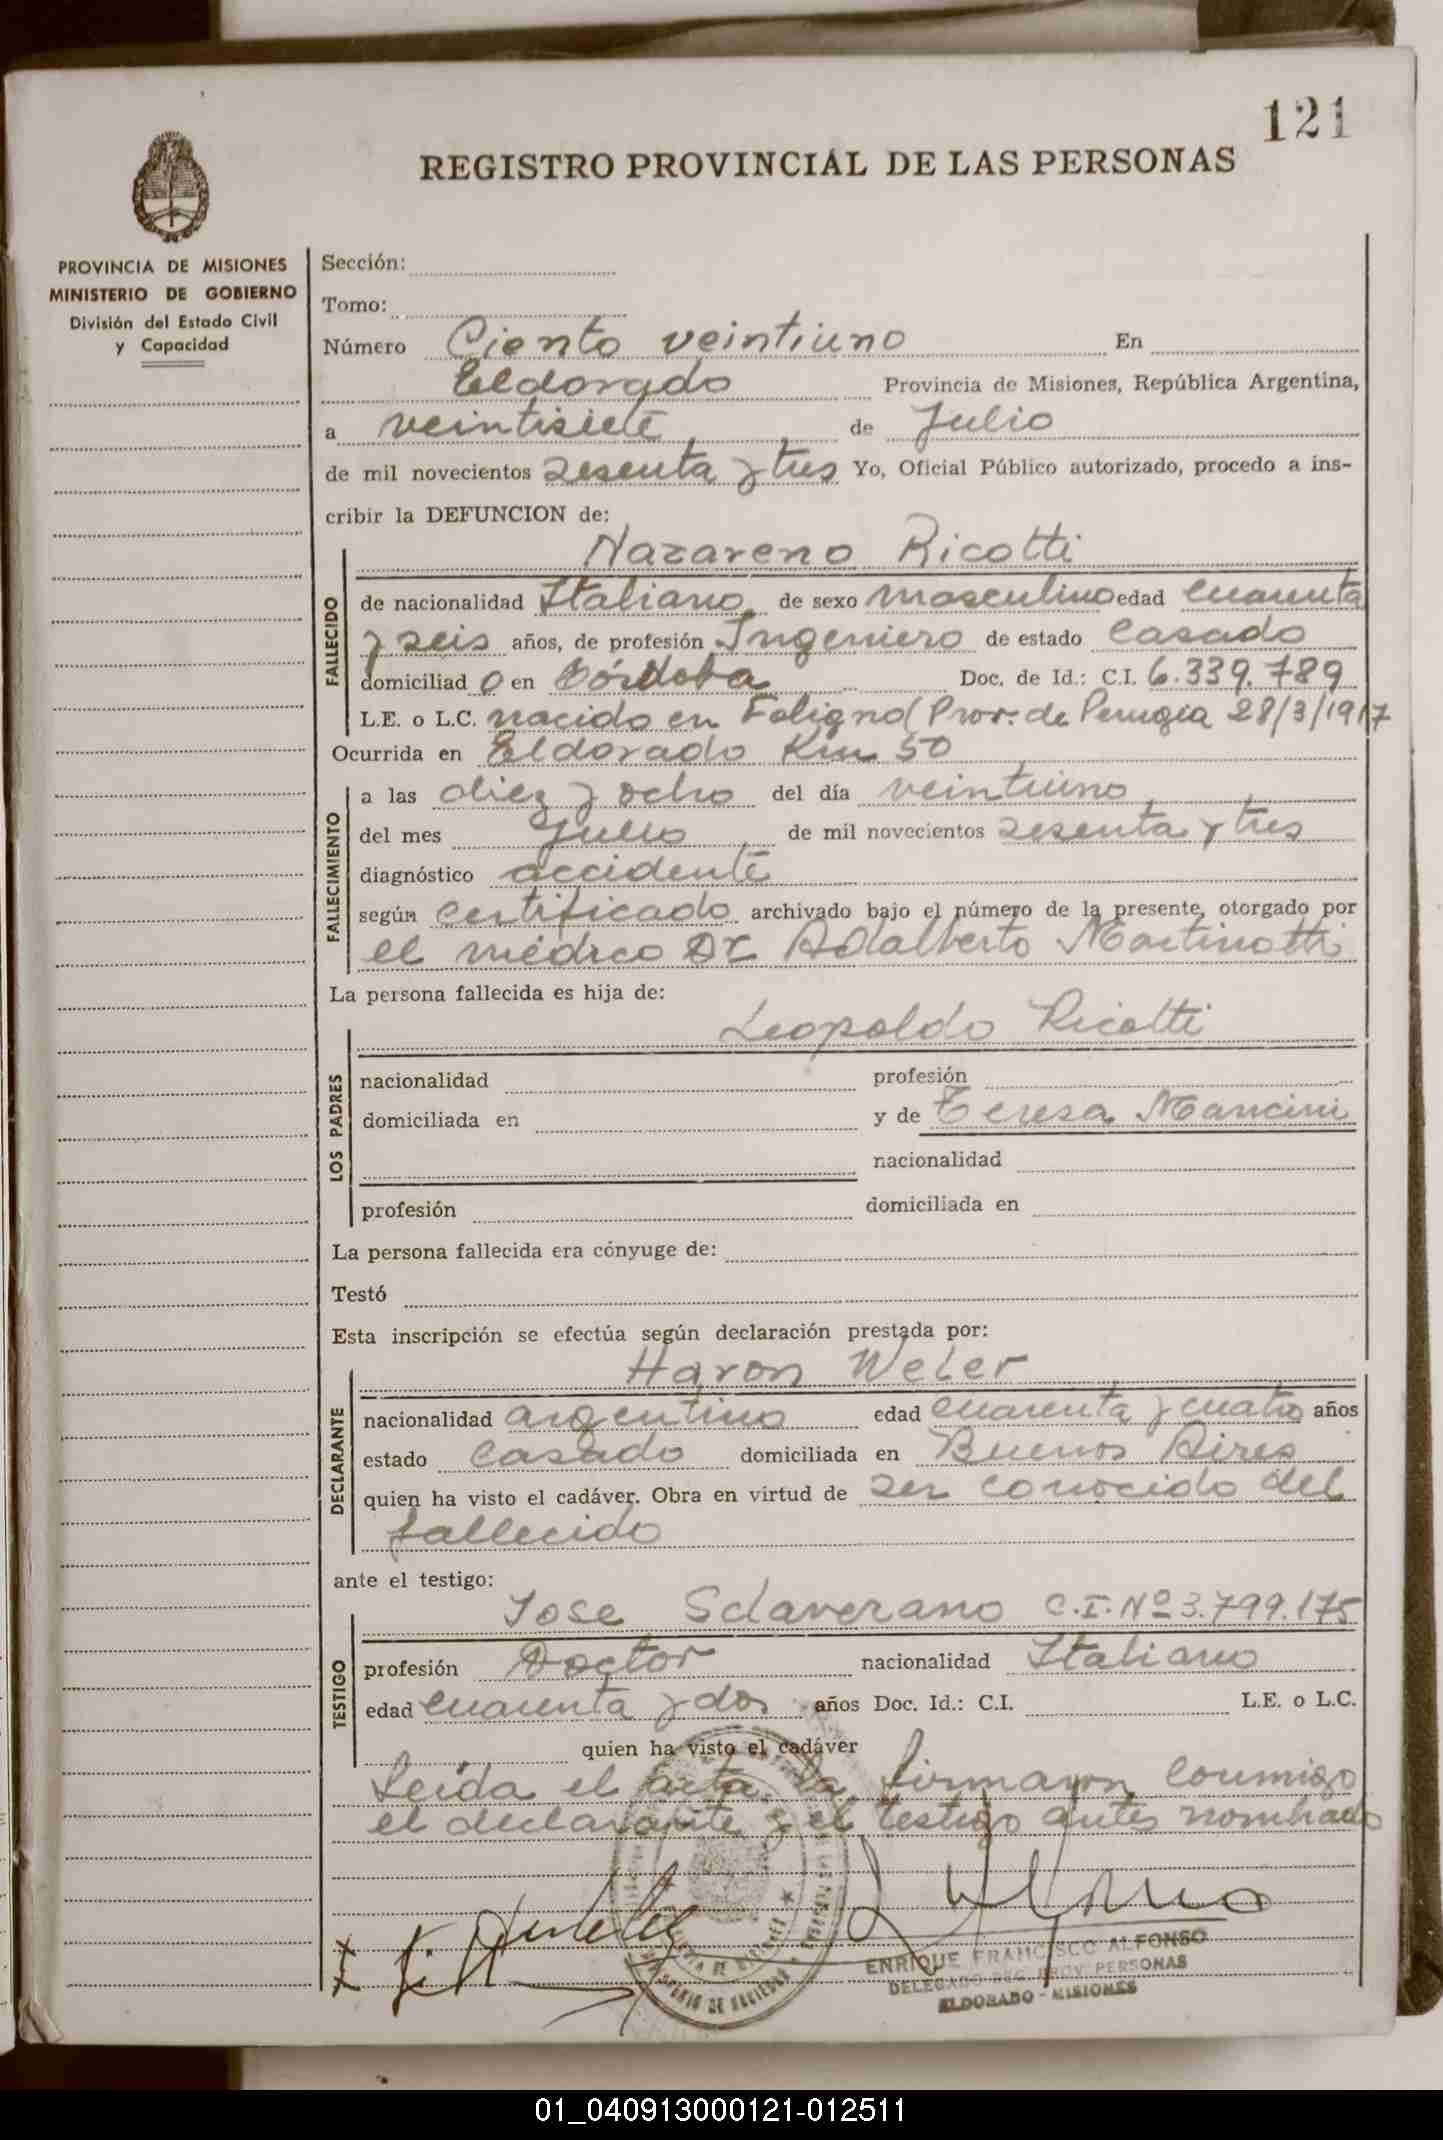 121
REGISTRO PROVINCIAL DE LAS PERSONAS
PROVINCIA DE MISIONES
MINISTERIO DE GOBIERNO
División del Estado Civil
y Capacidad
Sección:
Tomo:
Número Ciento veintiuno En
Eldorado Provincia de Misiones, República Argentina,
a veintisiete de Julio
de mil novecientos sesenta y tres Yo, Oficial Público autorizado, procedo a ins-
cribir la DEFUNCION de:
Nazareno Ricotti
FALLECIDO
de nacionalidad Italiano de sexo masculino edad cuarenta
y seis años, de profesión Ingeniero de estado casado
domiciliado en Córdoba Doc. de Id.: C.I. 6.339.789
L.E. o L.C. nacido en Foligno (Prov. de Perugia 28/3/1917
Ocurrida en Eldorado Km 50
FALLECIMIENTO
a las diez y ocho del día veintiuno
del mes Julio de mil novecientos sesenta y tres
diagnóstico accidente
según certificado archivado bajo el número de la presente, otorgado por
el médico Dr Adalberto Martinotti
La persona fallecida es hija de:
Leopoldo Ricotti
LOS PADRES
nacionalidad profesión
domiciliada en y de Teresa Mancini
nacionalidad
profesión domiciliada en
La persona fallecida era cónyuge de:
Testó
Esta inscripción se efectúa según declaración prestada por:
Haron Weler
DECLARANTE
nacionalidad argentino edad cuarenta y cuatro años
estado casado domiciliada en Buenos Aires
quien ha visto el cadáver. Obra en virtud de ser conocido del
fallecido
ante el testigo:
Jose Sclaverano C.I. Nº 3.799.175
TESTIGO
profesión Doctor nacionalidad Italiano
edad cuarenta y dos años Doc. Id.: C.I. L.E. o L.C.
quien ha visto el cadáver
Leída el acta la firmaron conmigo
el declarante y el testigo antes nombrado
ENRIQUE FRANCISCO ALFONSO
DELEGADO REG. PROV. PERSONAS
ELDORADO - MISIONES
01_040913000121-012511